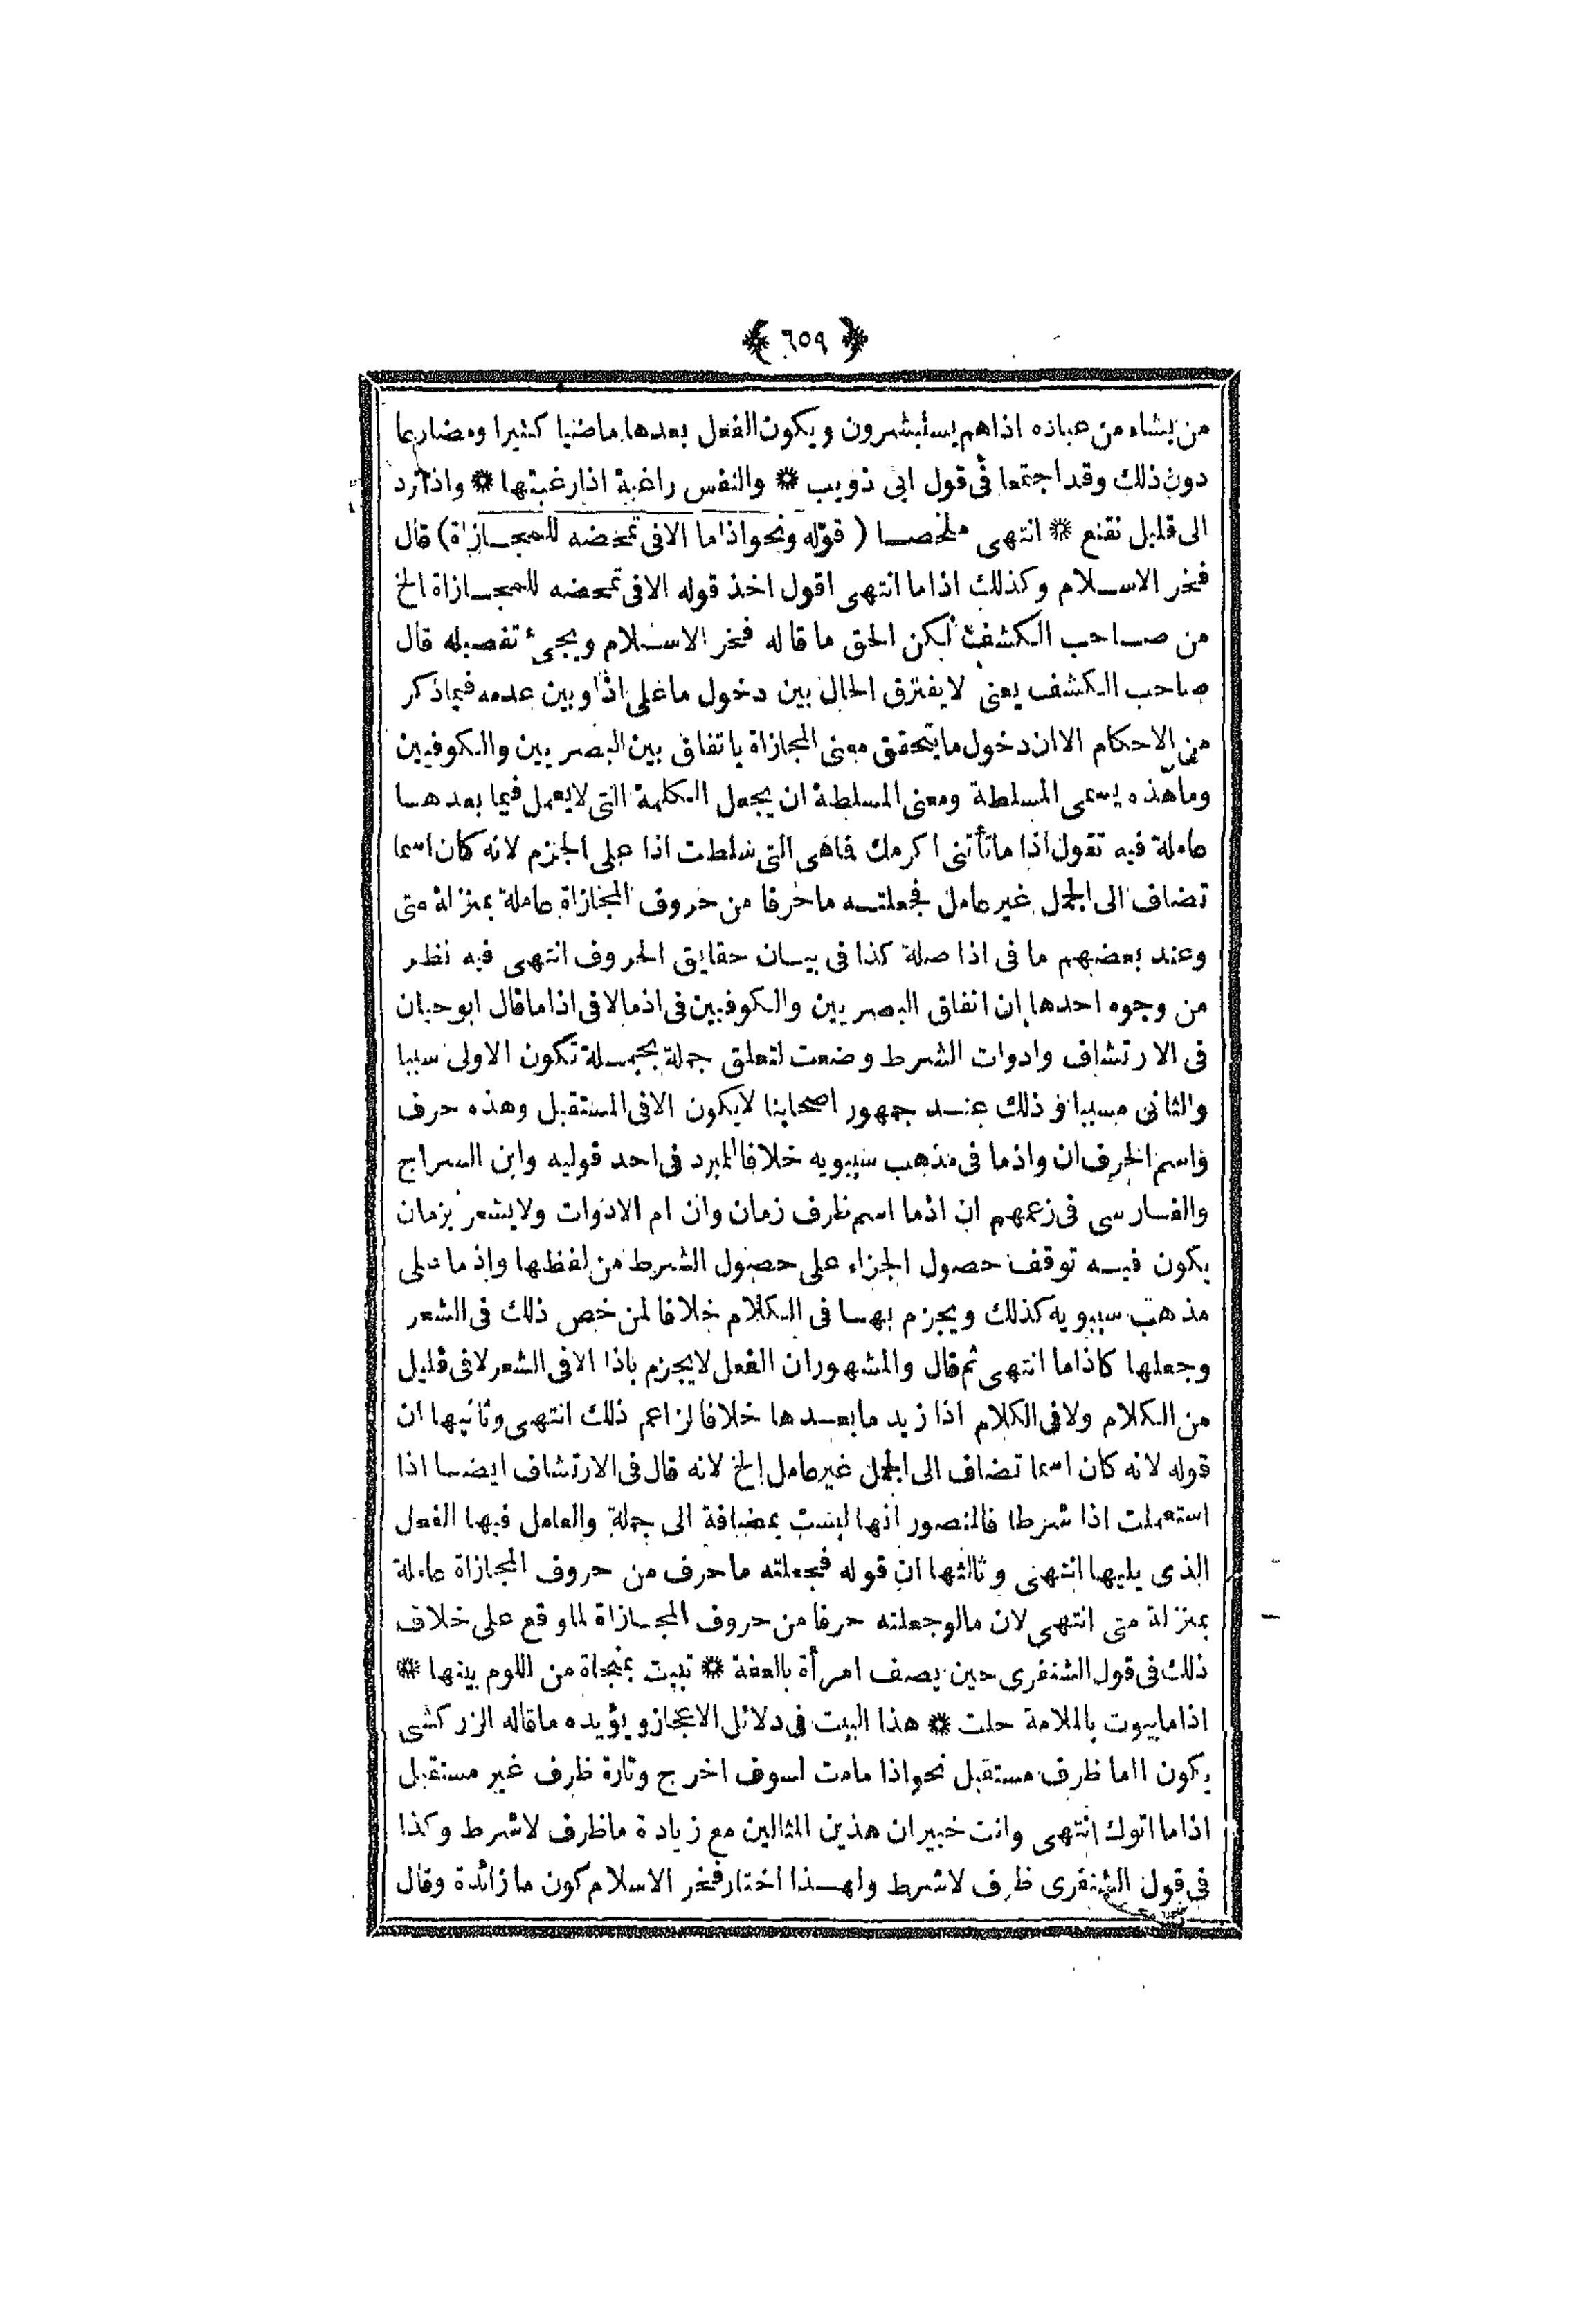 ﴿ ٦٥٩ ﴾
من يشاء من عباده اذاهم يستبشرون ويكون الفعل بعدها ماضيا كثيرا ومضارعا
دون ذلك وقد اجتمعا فى قول ابى ذويب ۞ والنفس راغبة اذا رغبتها ۞ واذا ترد
الى قليل نقنع ۞ انتهى ملخصا ( قوله ونحو اذاما الا فى تمحضه للمجازاة) قال
فخر الاسلام وكذلك اذاما انتهى اقول اخذ قوله الا فى تمحضه للمجازاة الخ
من صاحب الكشف لكن الحق ما قاله فخر الاسلام ويجئ تفصيله قال
صاحب الكشف يعنى لايفترق الحال بين دخول ما على اذا وبين عدمه فيما ذكر
من الاحكام الا ان دخول ما يحقق معنى المجازاة باتفاق بين البصريين والكوفيين
وما هذه يسمى المسلطة ومعنى المسلطة ان يجعل الكلمة التى لايعمل فيما بعدها
عاملة فيه تقول اذا ماتأتنى اكرمك فاهى التى سلطت اذا على الجزم لانه كان اسما
تضاف الى الجمل غير عامل فجعلته ما حرفا من حروف المجازاة عاملة بمنزلة متى
وعند بعضهم ما فى اذا صلة كذا فى بيان حقايق الحروف انتهى فيه نظر
من وجوه احدها ان اتفاق البصريين والكوفيين فى اذمالا فى اذاما قال ابوحيان
فى الارتشاف وادوات الشرط وضعت لتعلق جملة بجملة تكون الاولى سببا
والثانى مسببا وذلك عند جمهور اصحابنا لايكون الا فى المستقبل وهذه حرف
واسم الحرف ان واذما فى مذهب سيبويه خلافا للمبرد فى احد قوليه وابن السراج
والفارسى فى زعمهم ان اذما اسم ظرف زمان وان ام الادوات ولايشعر بزمان
يكون فيه توقف حصول الجزاء على حصول الشرط من لفظها واذما على
مذهب سيبويه كذلك ويجزم بها فى الكلام خلافا لمن خص ذلك فى الشعر
وجعلها كاذاما انتهى ثم قال والمشهور ان الفعل لايجزم باذا الا فى الشعر لا فى قليل
من الكلام ولا فى الكلام اذا زيد ما بعدها خلافا لزاعم ذلك انتهى وثانيها ان
قوله لانه كان اسما تضاف الى الجمل غير عامل الخ لانه قال فى الارتشاف ايضا اذا
استعملت اذا شرطا فالمنصور انها ليست بمضافة الى جملة والعامل فيها الفعل
الذى يليها انتهى وثالثها ان قوله فجعلته ما حرف من حروف المجازاة عاملة
بمنزلة متى انتهى لان مالو جعلته حرفا من حروف المجازاة لما وقع على خلاف
ذلك فى قول الشنفرى حين يصف امرأة بالعفة ۞ تبيت بمنجاة من اللوم بيتها ۞
اذاما بيوت بالملامة حلت ۞ هذا البيت فى دلائل الاعجاز ويؤيده ماقاله الزركشى
يكون اما ظرف مستقبل نحو اذا مامت لسوف اخرج وتارة ظرف غير مستقبل
اذاما اتوك انتهى وانت خبير ان هذين المثالين مع زيادة ما ظرف لاشرط وكذا
فى قول الشنفرى ظرف لاشرط ولهذا اختار فخر الاسلام كون ما زائدة وقال